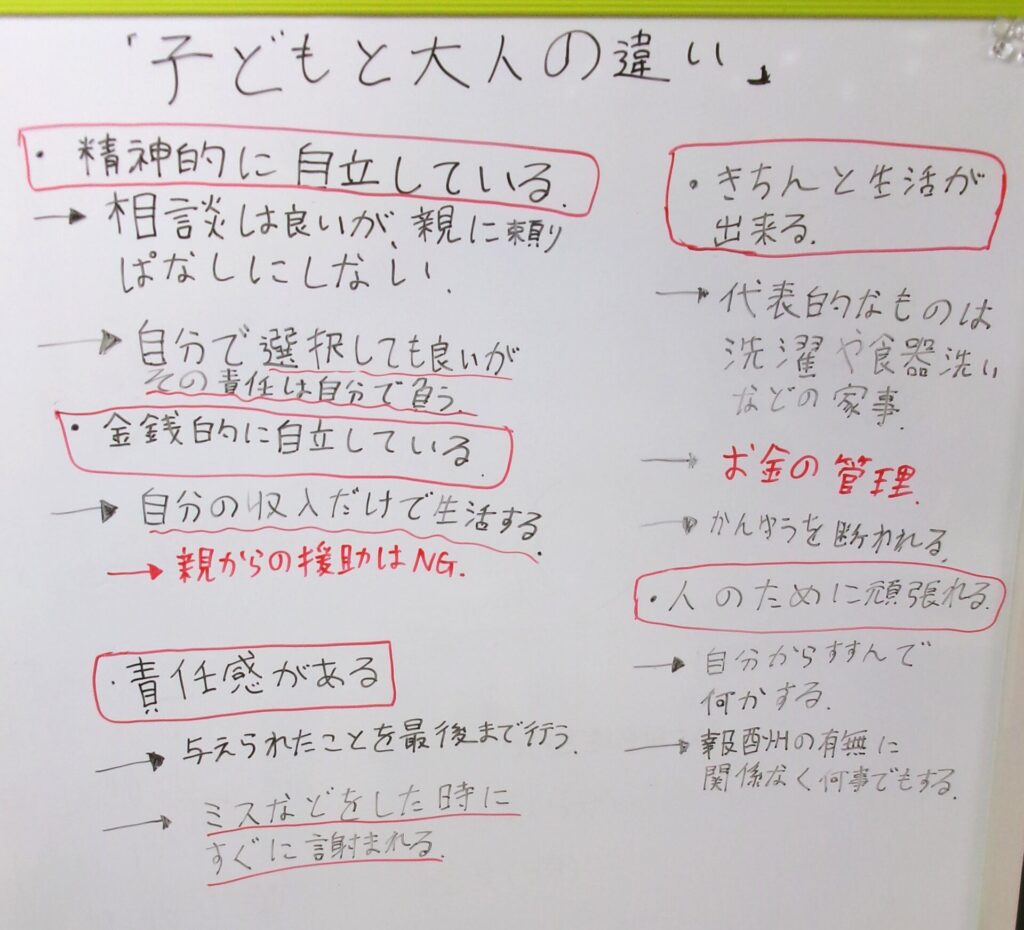 「子どもと大人の違い」
・精神的に自立している.
→相談は良いが、親に頼り
ぱなしにしない.
→自分で選択しても良いが
その責任は自分で負う.
・金銭的に自立している.
→自分の収入だけで生活する.
→親からの援助はNG.
・責任感がある
→与えられたことを最後まで行う.
→ミスなどをした時に
すぐに謝まれる.
・きちんと生活が
出来る.
→代表的なものは
洗濯や食器洗い
などの家事.
→お金の管理.
→かんゆうを断われる.
・人のために頑張れる.
→自分からすすんで
何かする.
→報酬の有無に
関係なく何事でもする.